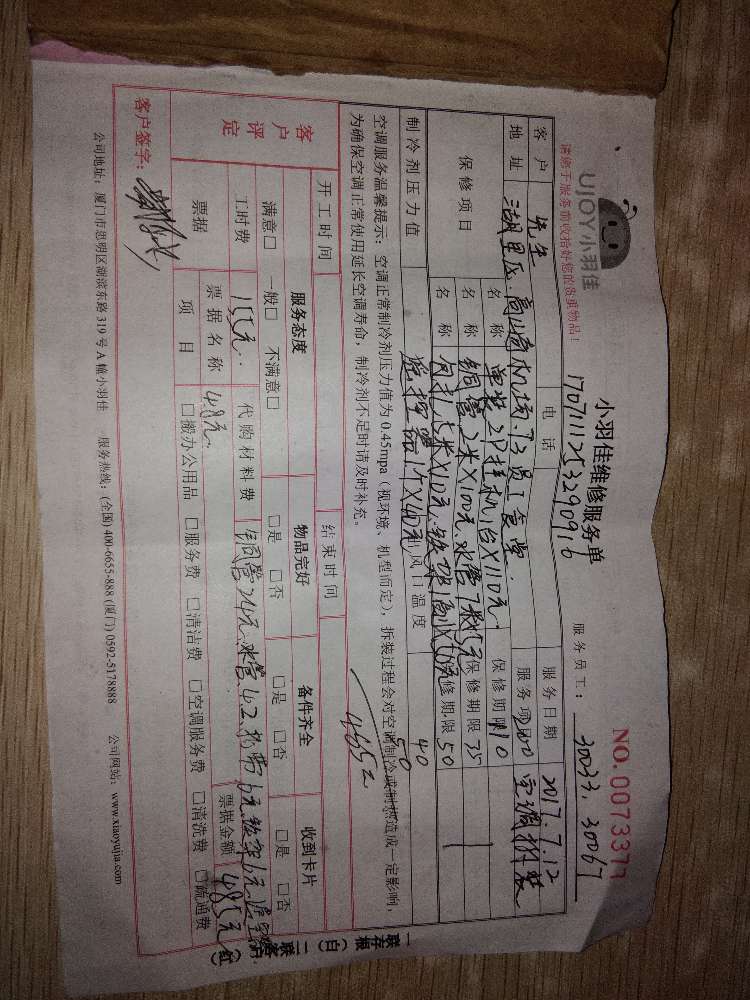 UJOY小羽佳
请您于服务前收拾好您的贵重物品!
小羽佳维修服务单
NO.0073377
1707111253290916
服务员工: 30033、30067
客户 先生 电话 服务日期 2017.7.12
地址 湖里区、高崎机场、T3员工食堂. 服务项 空调拆装
保修项目
名称 单装2P挂机1台X110元. 保修期限 110
名称 铜管2米X100元、水管7米X5元 保修期限 35
名称 修期限 50
制冷剂压力值 1个X40元 风口温度 40
空调服务温馨提示:空调正常制冷剂压力值为0.45mpa(视环境、机型而定),拆装过程会对空调制冷或制热造成一定影响,
为确保空调正常使用延长空调寿命,制冷剂不足时请及时补充。
开工时间 结束时间
客户评定
服务态度 物品完好 备件齐全 收到卡片
满意□ 一般□ 不满意□ □是 □否 □是 □否 □是 □否
工时费 155元. 代购材料费 铜管24元、水管42、
票据 票据名称 48元. 票据金额 485元
项目 □搬办公用品 □服务费 □清洁费 □空调服务费 □清洗费 □疏通费
客户签字:
一联存根(白) 二联客户(红)
公司地址:厦门市思明区湖滨东路319号A幢小羽佳 服务热线:(全国)400-6655-888 (厦门)0592-5178888 公司网站:www.xiaoyujia.com